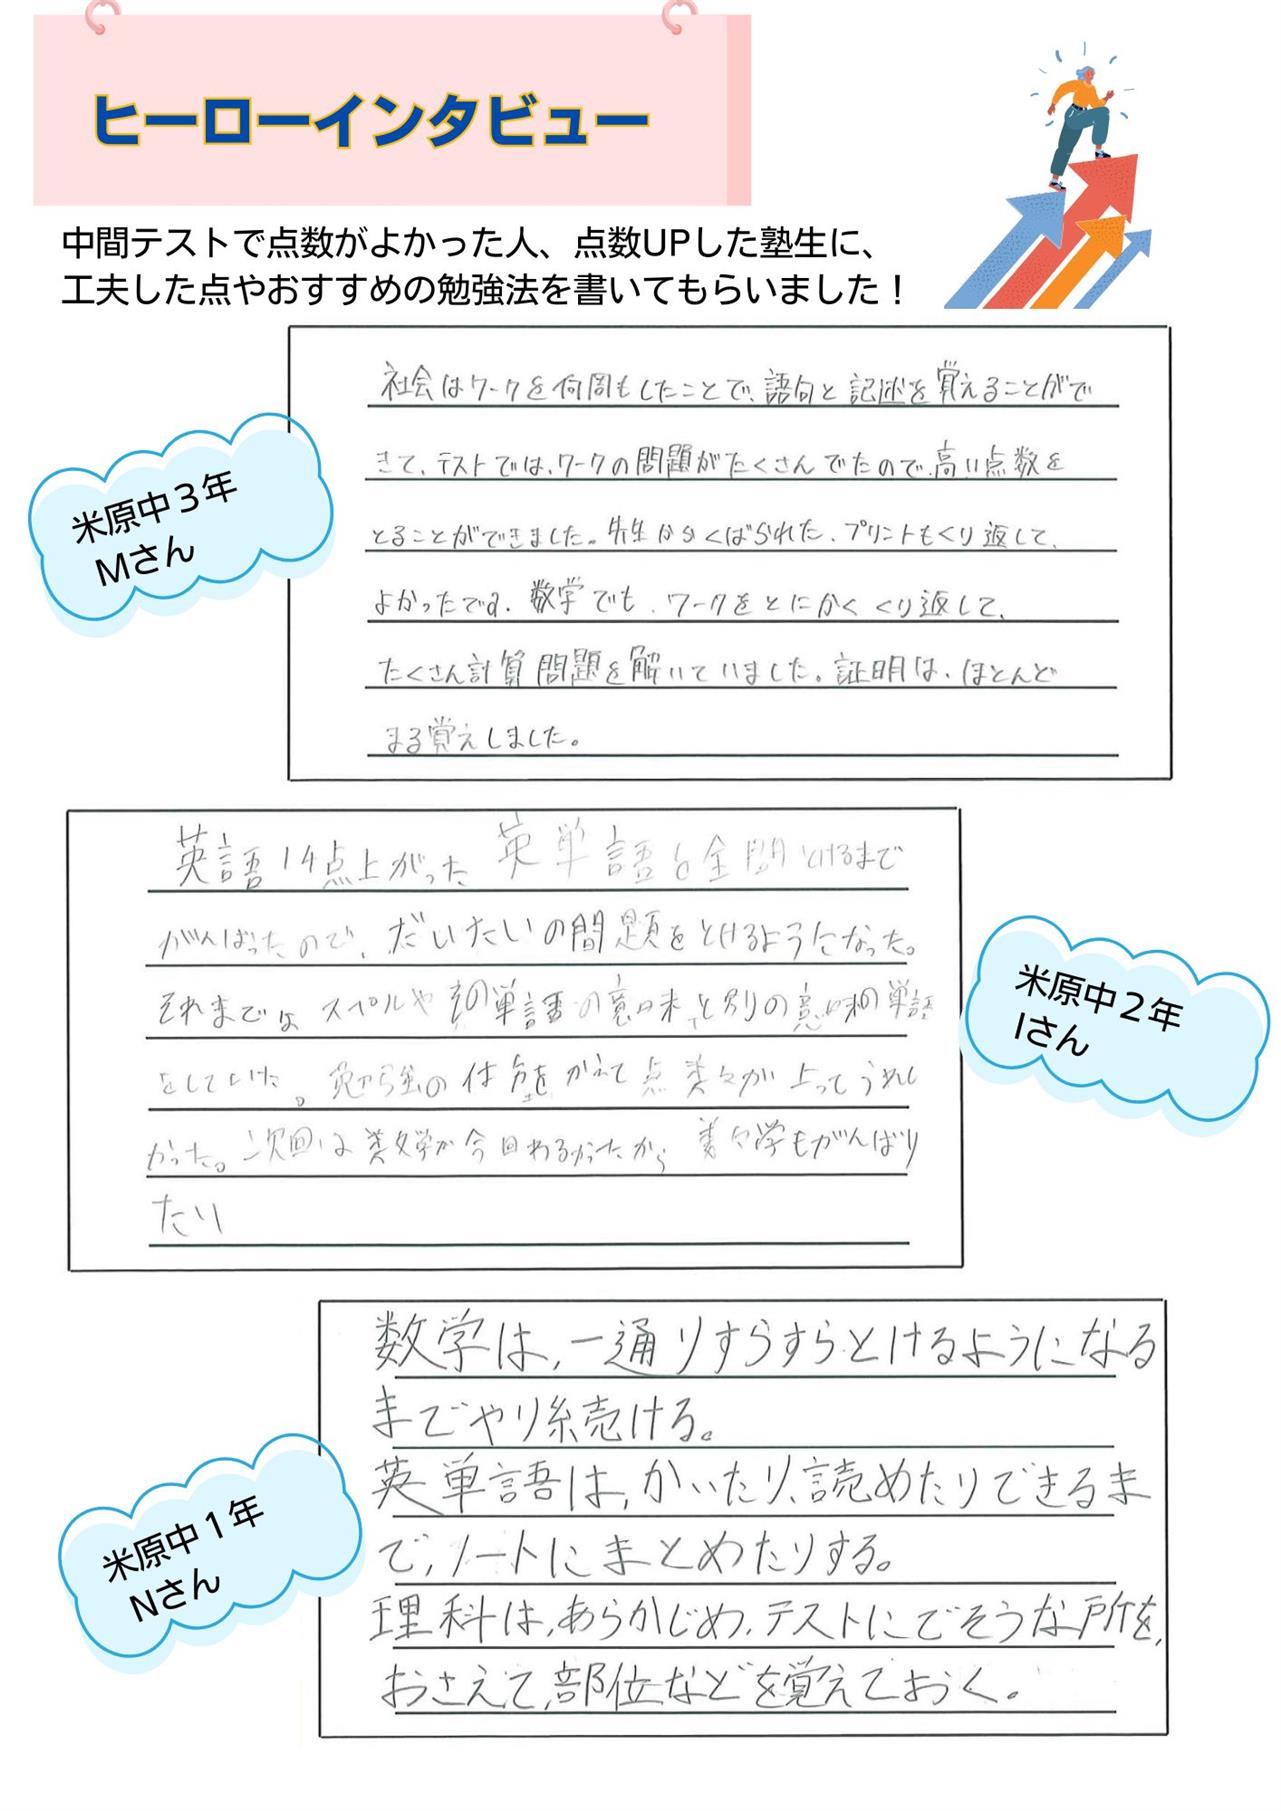 ヒーローインタビュー
中間テストで点数がよかった人、点数UPした塾生に、
工夫した点やおすすめの勉強法を書いてもらいました！
米原中３年
Mさん
社会はワークを何周もしたことで、語句と記述を覚えることがで
きて、テストでは、ワークの問題がたくさんでたので、高い点数を
とることができました。先生からくばられた、プリントもくり返して、
よかったです。数学でも、ワークをとにかくくり返して、
たくさん計算問題を解いていました。証明は、ほとんど
まる覚えしました。
英語14点上がった 英単語を全問とけるまで
がんばったので、だいたいの問題をとけるようになった。
それまでは スペルや その単語の意味と別の意味の単語
をしていた。勉強の体型をかえて点数が上ってうれし
かった。次回は数学が今回わるかったから 数学もがんばり
たい
米原中２年
Iさん
米原中１年
Nさん
数学は、一通りすらすらとけるようになる
までやり続ける。
英単語は、かいたり、読めたりできるま
で、ノートにまとめたりする。
理科は、あらかじめ、テストにでそうな所を、
おさえて、部位などを覚えておく。